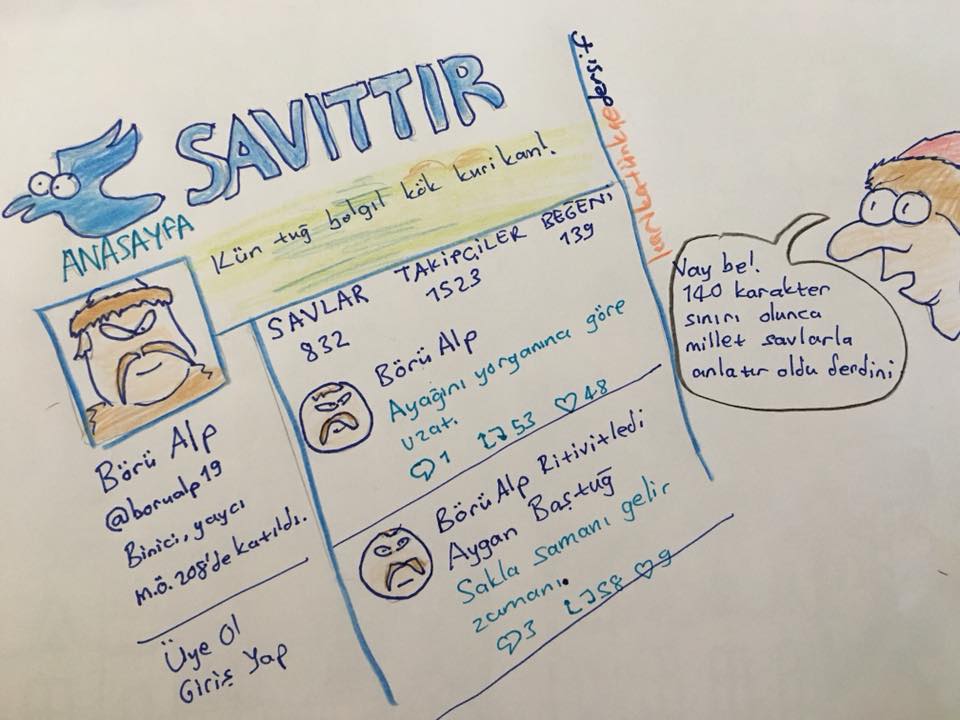 SAVITTIR
ANASAYFA
Kün tuğ bolgıl kök kurikan!
SAVLAR TAKİPÇİLER BEĞENİ
832 1523 139
Börü Alp
@borualp19
Binici, yaycı
M.Ö. 208'de katıldı.
Üye Ol
Giriş Yap
Börü Alp
Ayağını yorganına göre
uzat.
1 53 48
Börü Alp Ritivitledi
Aygan Baştuğ
Sakla samanı gelir
zamanı.
3 58 9
Vay be!
140 karakter
sınırı olunca
millet savlarla
anlatır oldu derdini